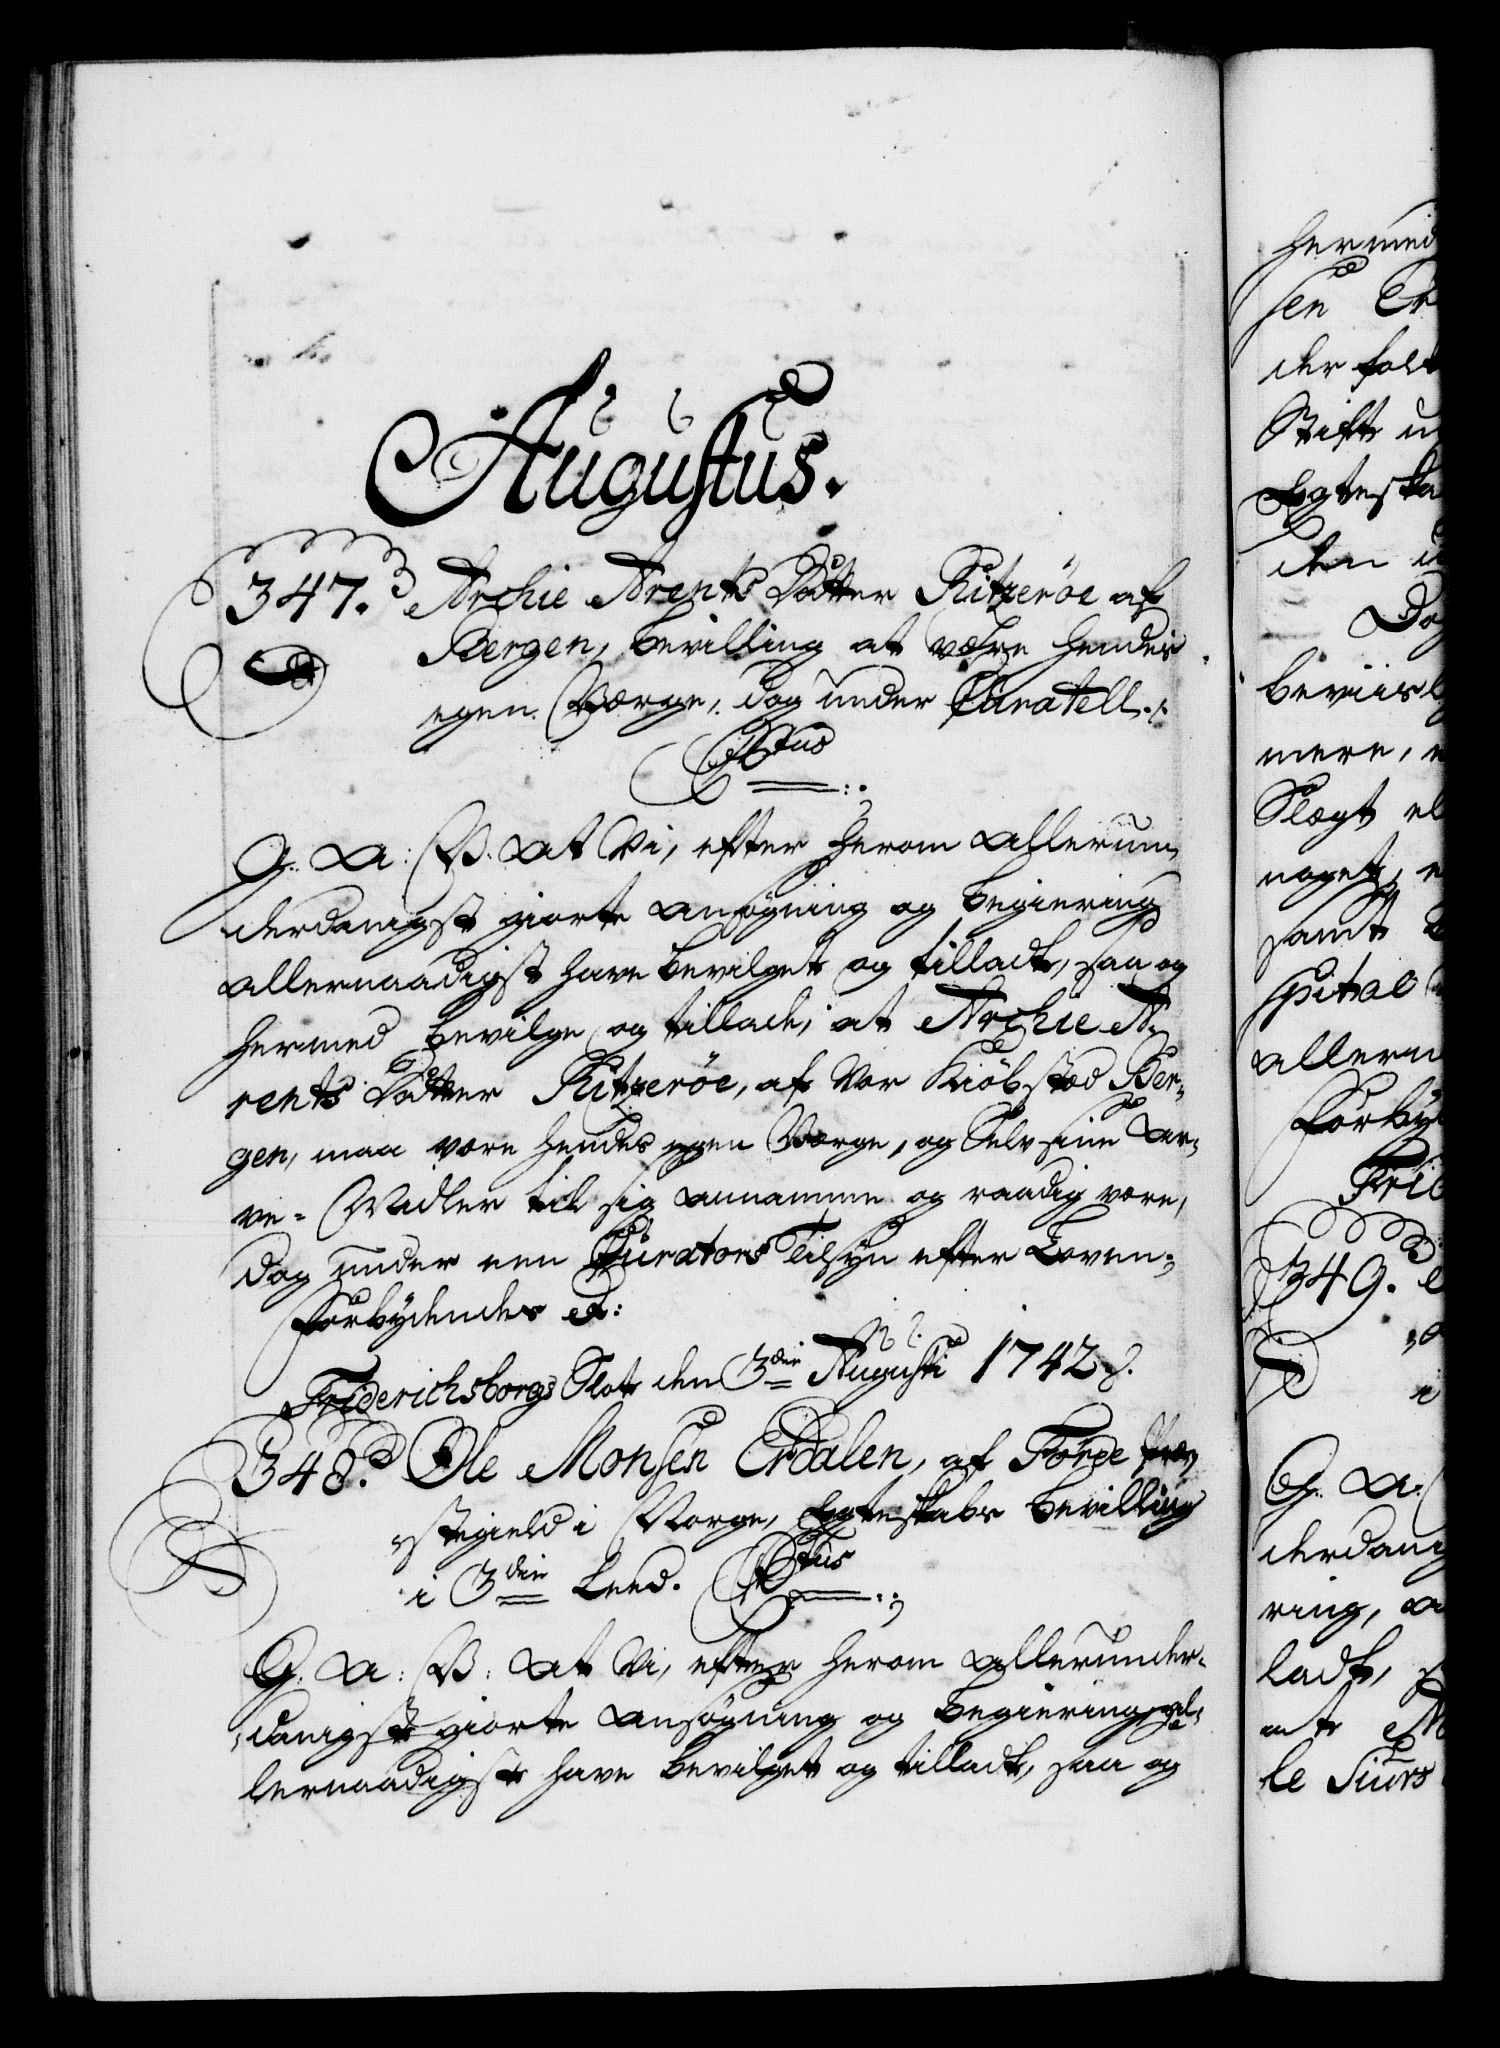 Augustus.
347. Archie Arents Datter Ritzerøe af
Bergen, Bevilling at være hendes
egen Værge, dog under Curatell.
Gus
G. A: V. at Vi, efter herom allerun-
derdanigst giorte ansøgning og begiering
allernaadigst have bevilget og tilladt, saa og
hermed bevilge og tillade, at Archie A-
rents Datter Ritzerøe, af Vor Kiöbstæd Ber-
gen, maa være hendes egen Værge, og Selv sine Ar-
ve-Midler til sig annamme og raadig være,
dog under een Curators Tilsyn efter Loven;
Forbydendes &:
Friderichsborgs Slot den 3die Augusti 1742.
348. Ole Monsen Erdalen, af Förde Præ-
stegield i Norge, Egteskabs Bevilling
i 3die Leed. Gus
G. A: V: at Vi, efter herom allerunder-
danigst giorte ansøgning og begiering, al-
lernaadigst have bevilget og tilladt, saa og
hermed
sen Er
der fol
Stift u
Egteska
den u
Dog
beviisl
mere, e
Slægt el
noget, e
samt
spital
allern
Forby
Frid
349.
G. A:
derdanig
ring, a
ladt, s
at M
le Siurs